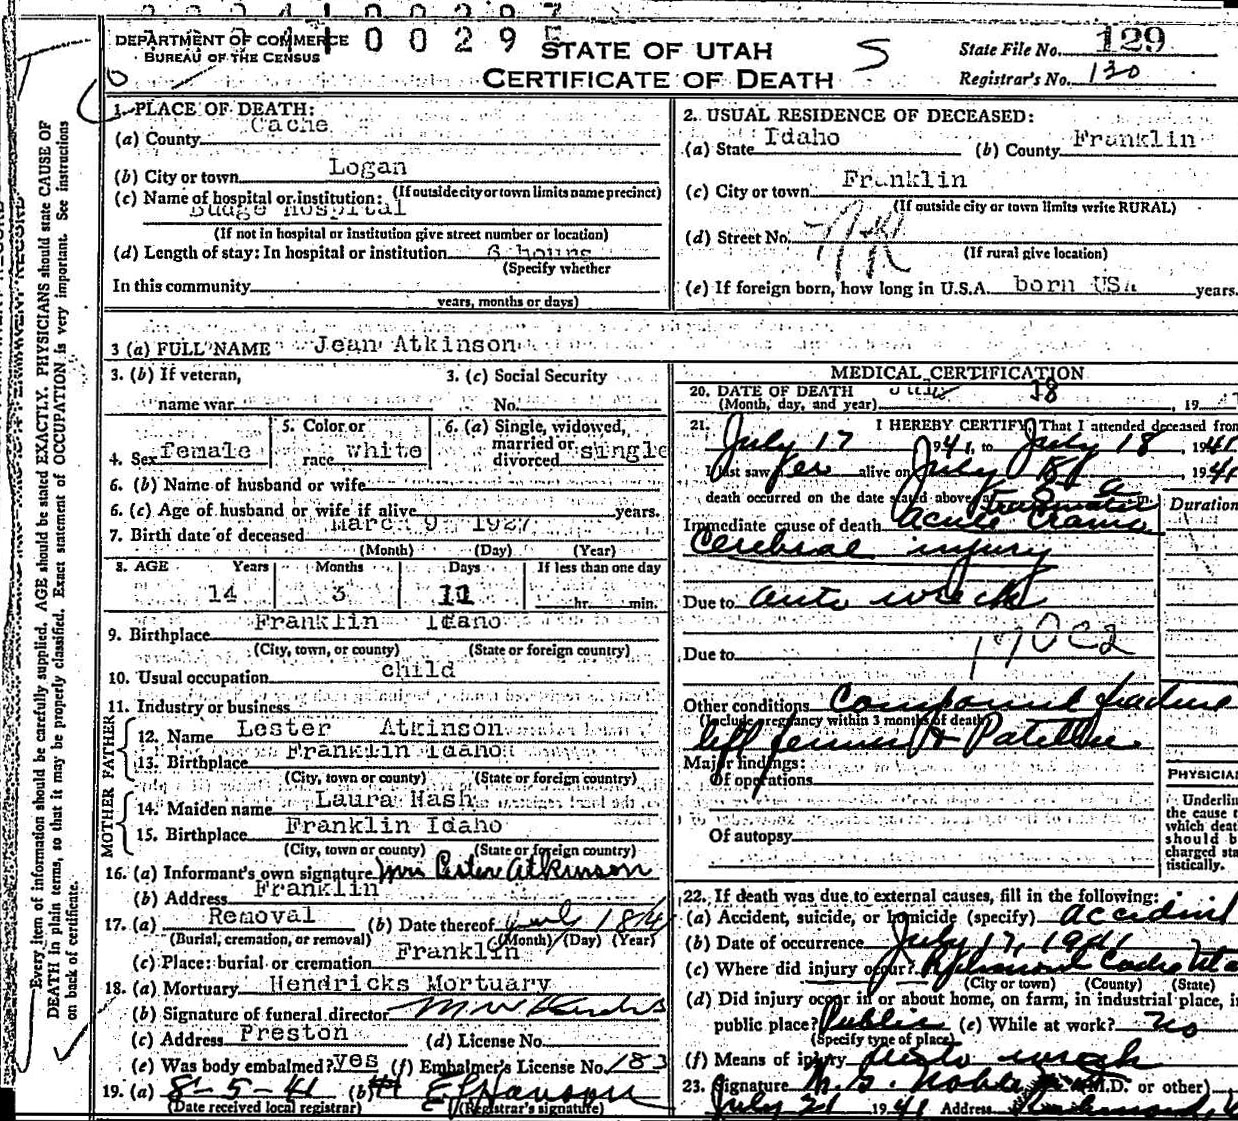 DEPARTMENT OF COMMERCE
BUREAU OF THE CENSUS
STATE OF UTAH
CERTIFICATE OF DEATH
S
State File No. 129
Registrar's No. 130
1. PLACE OF DEATH:
(a) County Cache
(b) City or town Logan
(If outside city or town limits name precinct)
(c) Name of hospital or institution:
Budge Hospital
(If not in hospital or institution give street number or location)
(d) Length of stay: In hospital or institution 6 hours
(Specify whether
In this community
years, months or days)
2. USUAL RESIDENCE OF DECEASED:
(a) State Idaho (b) County Franklin
(c) City or town Franklin
(If outside city or town limits write RURAL)
(d) Street No.
(If rural give location)
(e) If foreign born, how long in U.S.A. born USA years.
3 (a) FULL NAME Jean Atkinson
3. (b) If veteran,
name war
3. (c) Social Security
No.
4. Sex female
5. Color or
race white
6. (a) Single, widowed,
married or
divorced single
6. (b) Name of husband or wife
6. (c) Age of husband or wife if alive years.
7. Birth date of deceased March 9 1927
(Month) (Day) (Year)
8. AGE Years Months Days If less than one day
14 3 11 hr. min.
9. Birthplace Franklin Idaho
(City, town, or county) (State or foreign country)
10. Usual occupation child
11. Industry or business
FATHER
12. Name Lester Atkinson
13. Birthplace Franklin Idaho
(City, town or county) (State or foreign country)
MOTHER
14. Maiden name Laura Nash
15. Birthplace Franklin Idaho
(City, town or county) (State or foreign country)
16. (a) Informant's own signature Mrs Lester Atkinson
(b) Address Franklin
17. (a) Removal (b) Date thereof July 18 41
(Burial, cremation, or removal) (Month) (Day) (Year)
(c) Place: burial or cremation Franklin
18. (a) Mortuary Hendricks Mortuary
(b) Signature of funeral director
(c) Address Preston (d) License No.
(e) Was body embalmed? yes (f) Embalmer's License No. 183
19. (a) 8-5-41 (b)
(Date received local registrar) (Registrar's signature)
MEDICAL CERTIFICATION
20. DATE OF DEATH July 18
(Month, day, and year) , 19
21. I HEREBY CERTIFY, That I attended deceased from
July 17 1941, to July 18, 1941
I last saw her alive on July 18, 1941
death occurred on the date stated above at 5 a m.
Duration
Immediate cause of death Acute traumatic Cranio
Cerebral injury
Due to auto wreck
170C2
Due to
Other conditions Compound fracture
(Include pregnancy within 3 months of death)
left femur & Patella
Major findings:
Of operations
Of autopsy
PHYSICIAN
Underline
the cause t
which deat
should b
charged sta
tistically.
22. If death was due to external causes, fill in the following:
(a) Accident, suicide, or homicide (specify) accident
(b) Date of occurrence July 17, 1941
(c) Where did injury occur? Richmond Cache Utah
(City or town) (County) (State)
(d) Did injury occur in or about home, on farm, in industrial place, in
public place? Public (e) While at work? no
(Specify type of place)
(f) Means of injury auto wreck
23. Signature (M.D. or other)
July 21 1941 Address Richmond, U
Every item of information should be carefully supplied. AGE should be stated EXACTLY. PHYSICIANS should state CAUSE OF
DEATH in plain terms, so that it may be properly classified. Exact statement of OCCUPATION is very important. See instructions
on back of certificate.